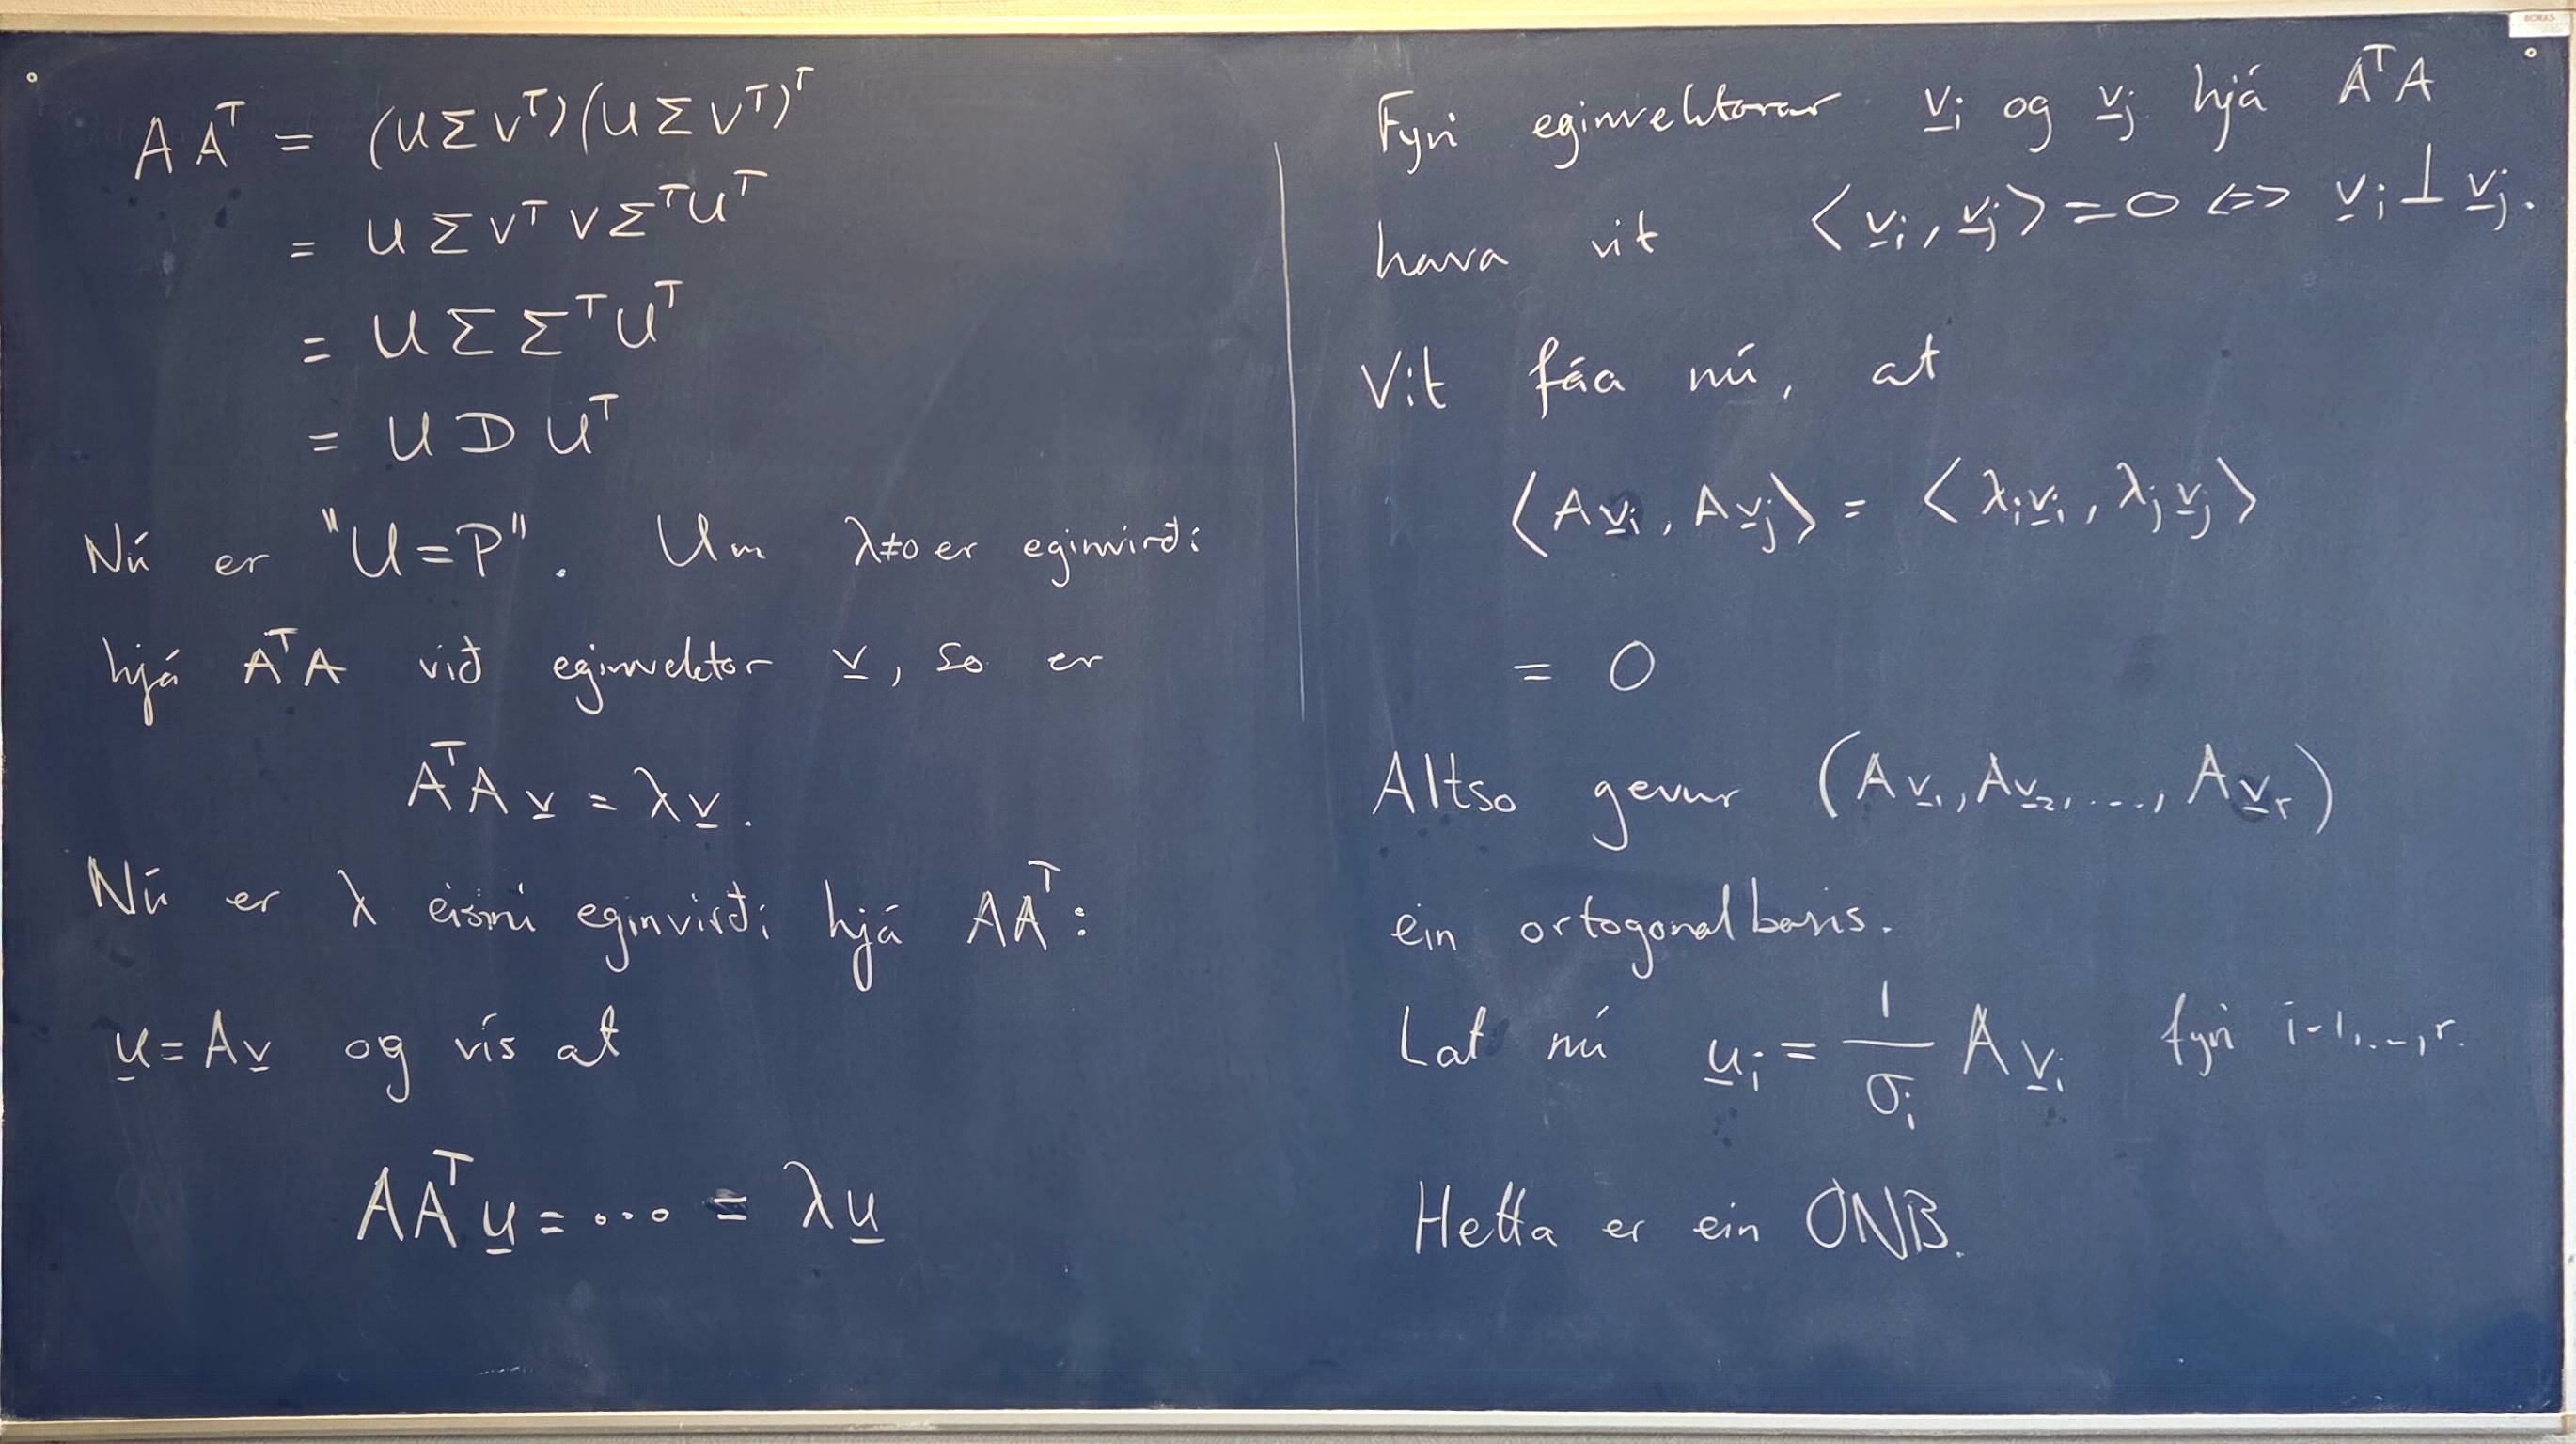 A Aᵀ = (U Σ Vᵀ)(U Σ Vᵀ)ᵀ
= U Σ Vᵀ V Σᵀ Uᵀ
= U Σ Σᵀ Uᵀ
= U D Uᵀ
Nú er "U=P". Um λ≠0 er eginvirði
hjá AᵀA við eginvektor v̲, so er
AᵀA v̲ = λ v̲.
Nú er λ eisini eginvirði hjá AAᵀ:
u̲ = A v̲ og vís at
AAᵀ u̲ = ... = λ u̲
Fyri eginvektorar v̲ᵢ og v̲ⱼ hjá AᵀA
hava vit ⟨v̲ᵢ, v̲ⱼ⟩ = 0 ⇔ v̲ᵢ ⊥ v̲ⱼ.
Vit fáa nú, at
⟨A v̲ᵢ, A v̲ⱼ⟩ = ⟨λᵢ v̲ᵢ, λⱼ v̲ⱼ⟩
= 0
Altso gevur (A v̲₁, A v̲₂, ..., A v̲ᵣ)
ein ortogonalbasis.
Lat nú u̲ᵢ = 1/σᵢ A v̲ᵢ fyri i=1,...,r.
Hetta er ein ONB.
BORKS